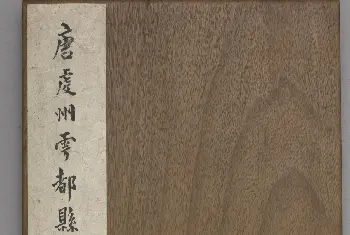 唐虔州雩都縣